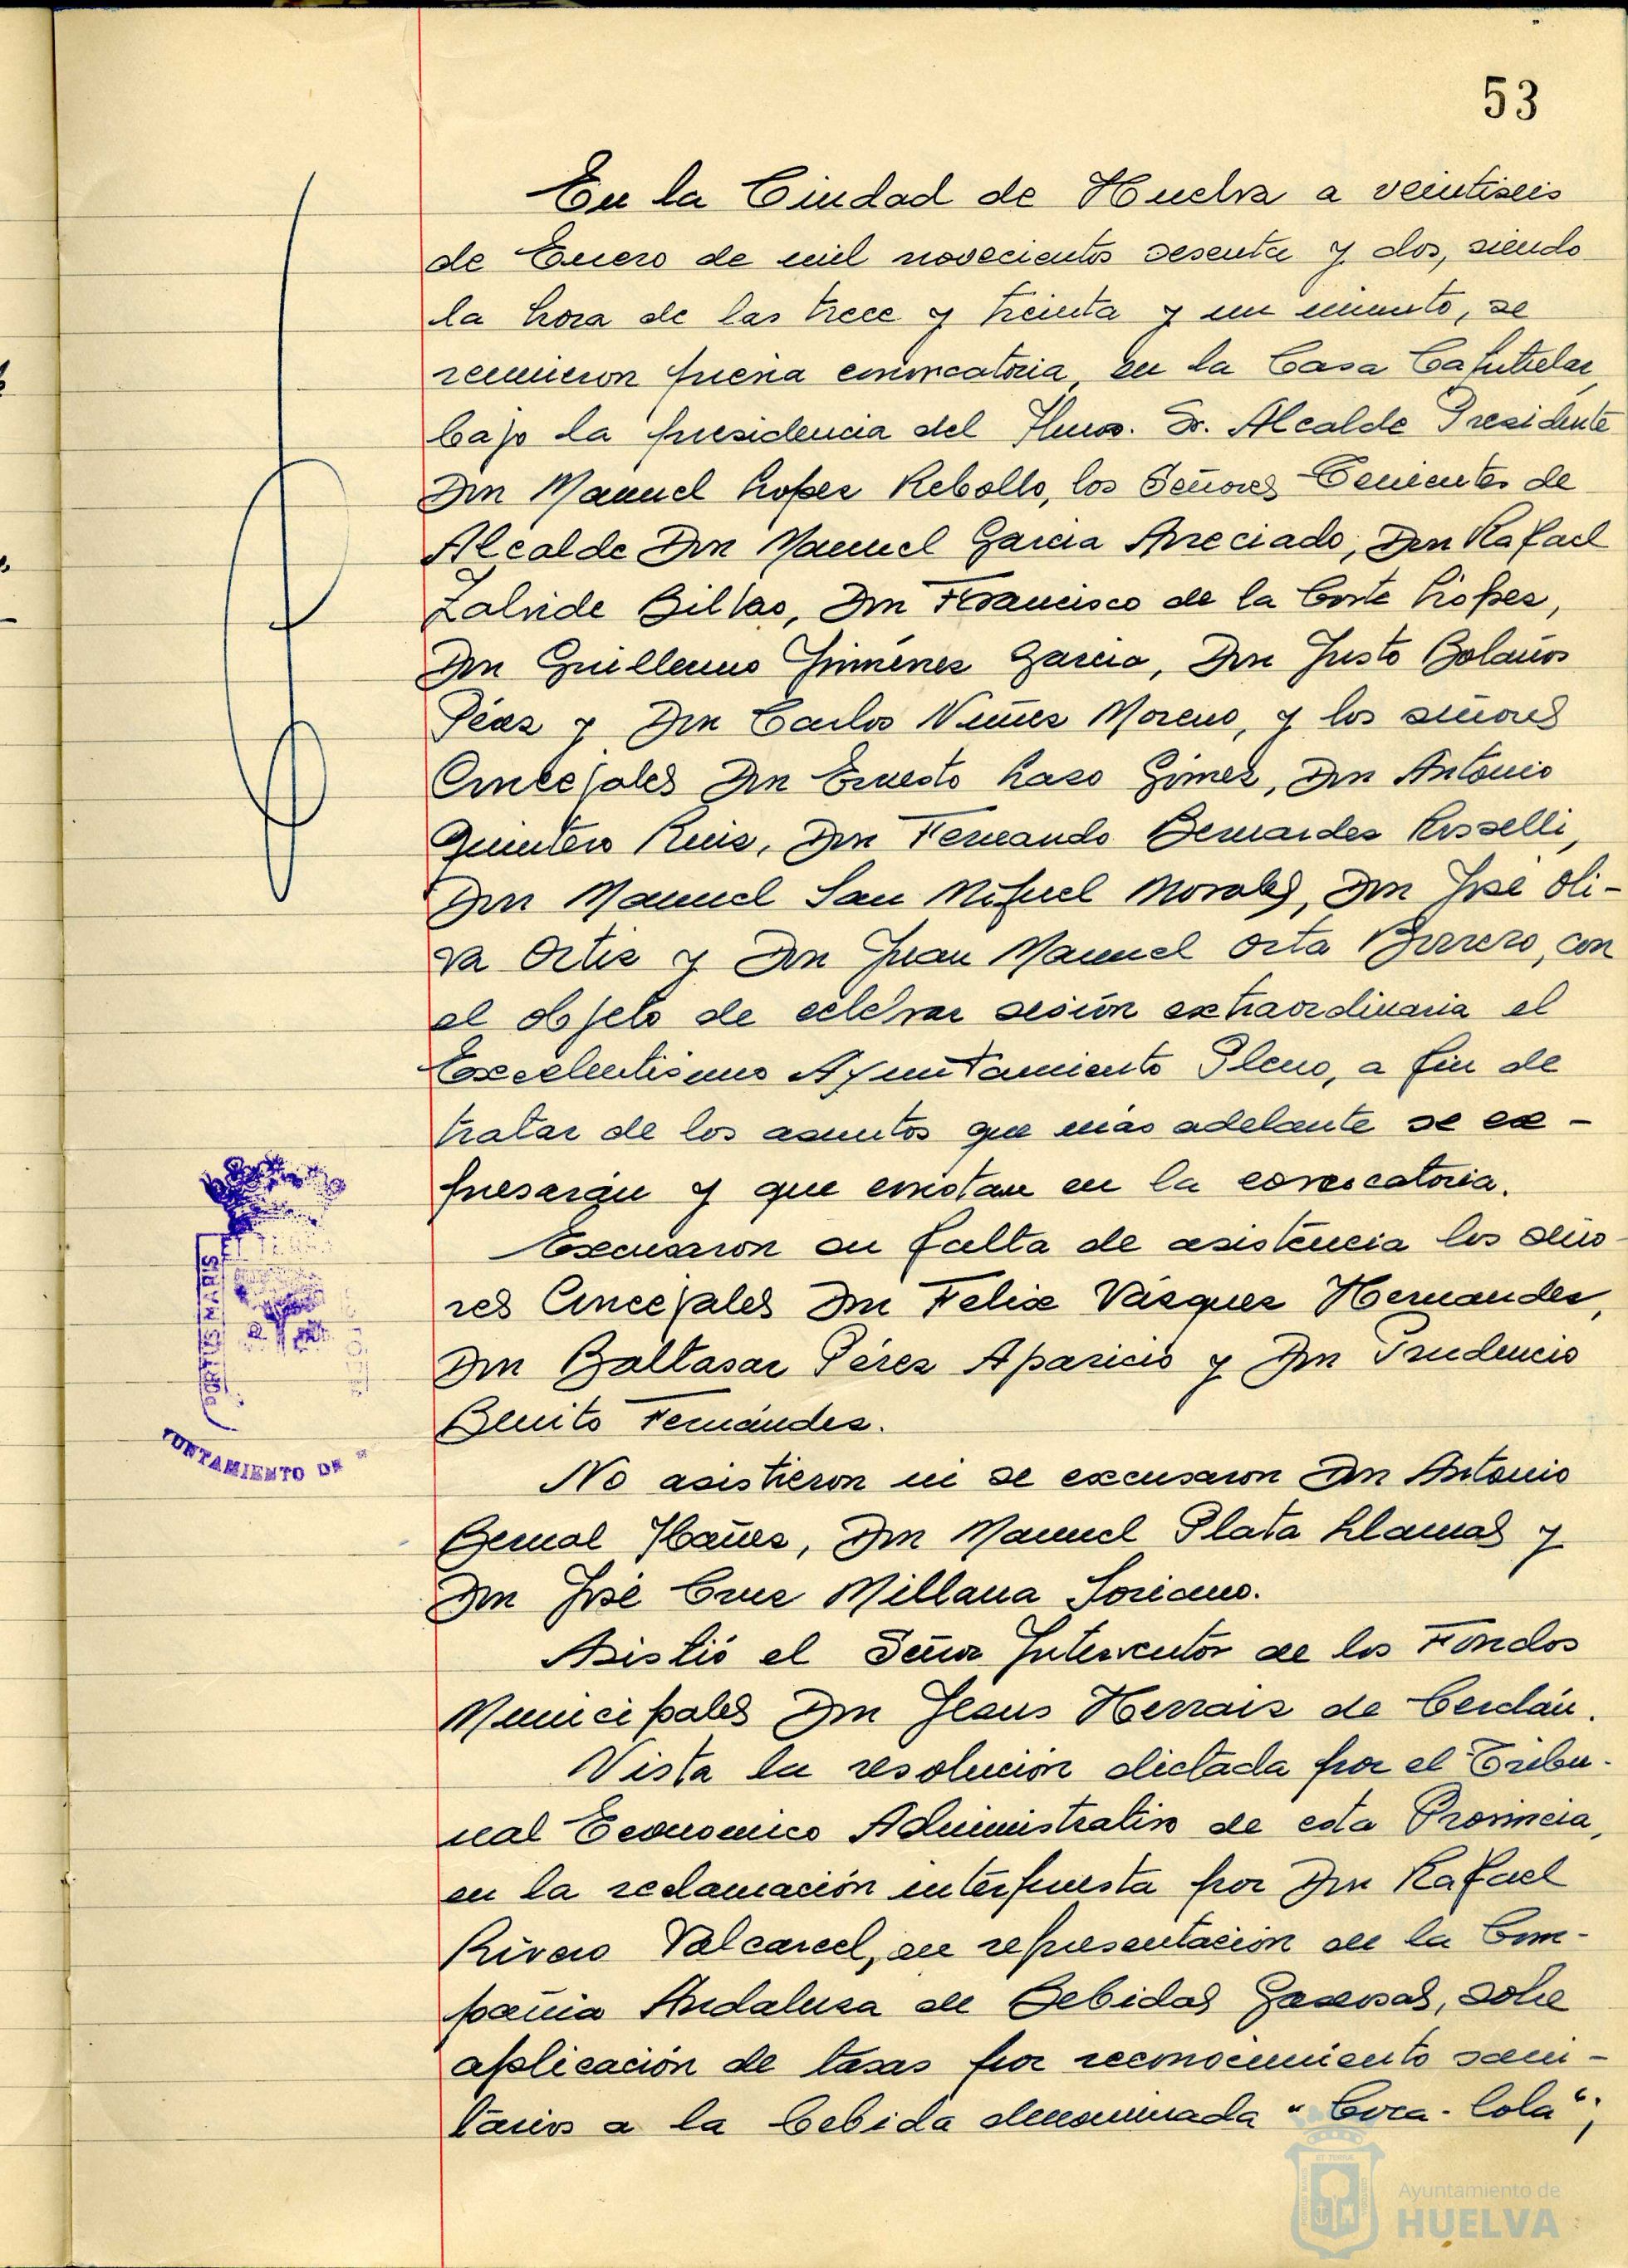 53
En la Ciudad de Huelva a veintiseis
de Enero de mil novecientos sesenta y dos, siendo
la hora de las trece y treinta y un minuto, se
reunieron previa convocatoria, en la Casa Capitular
bajo la presidencia del Iltmo. Sr. Alcalde Presidente
Don Manuel Lopez Rebollo, los Señores Tenientes de
Alcalde Don Manuel Garcia Apreciado, Don Rafael
Zalvide Bilbao, Don Francisco de la Corte López,
Don Guillermo Jiménez Garcia, Don Justo Bolaños
Péaz y Don Carlos Núñez Moreno, y los señores
Concejales Don Ernesto Lazo Gómez, Don Antonio
Quintero Ruiz, Don Fernando Bernardez Rosselli,
Don Manuel San Miguel Morales, Don José Oli-
va Ortiz y Don Juan Manuel Orta Borrero, con
el objeto de celebrar sesión extraordinaria el
Excelentisimo Ayuntamiento Pleno, a fin de
tratar de los asuntos que más adelante se ex-
presarán y que constan en la convocatoria.
Excusaron su falta de asistencia los seño-
res Concejales Don Felix Vásquez Hernandez,
Don Baltasar Pérez Aparicio y Don Prudencio
Benito Fernández.
No asistieron ni se excusaron Don Antonio
Bernal Ibañez, Don Manuel Plata Llamas y
Don José Cruz Millana Soriano.
Asistió el Señor Interventor de los Fondos
Municipales Don Jesus Herraiz de Cerdán.
Vista la resolución dictada por el Tribu-
nal Economico Administrativo de esta Provincia,
en la reclamación interpuesta por Don Rafael
Rivero Valcarcel, en representación de la Com-
pañia Andaluza de Bebidas Gaseosas, sobre
aplicación de tasas por reconocimiento sani-
tarios a la bebida denominada "Coca-Cola";
PORTUS MARIS
ET TERRA
YUNTAMIENTO DE
Ayuntamiento de
HUELVA